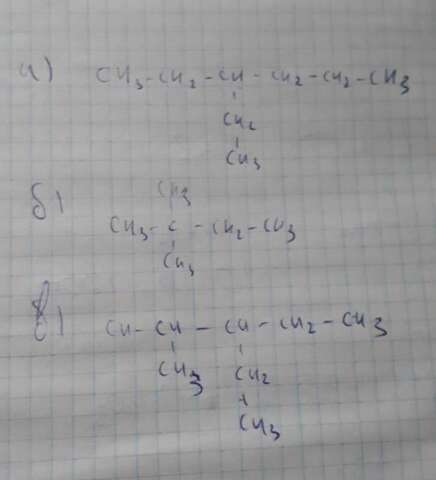 а) CH3-CH2-CH-CH2-CH2-CH3
CH2
CH3
CH3
б) CH3-C-CH2-CH3
CH3
в) CH-CH-CH-CH2-CH3
CH3 CH2
CH3